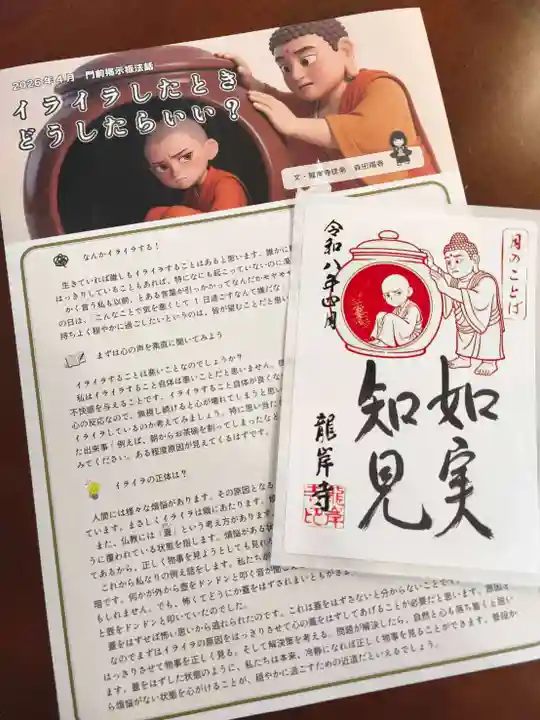 2026年4月 門前掲示板法話
イライラしたとき
どうしたらいい？
なんかイライラする！
生きていれば誰しもイライラすることはあると思います。誰かに
はっきりしていることもあれば、特になにも起こっていないのに
かく言う私も以前、とある言葉が引っかかってなんだかモヤモヤ
の日は、「こんなことで気を悪くして1日過ごすなんて嫌だな
持ちよく穏やかに過ごしたいというのは、皆が望むことだと思い
まずは心の声を素直に聞いてみよう
イライラすることは悪いことなのでしょうか？
私はイライラすること自体は悪いことだと思いません。
不快感を与えることです。イライラすること自体が良くな
心の反応なので、無視し続けると心が壊れてしまうと思い
イライラしているのか考えてみましょう。特に思い当た
た出来事「例えば、朝からお茶碗を割ってしまったなど
みてください。ある程度原因が見えてくるはずです。
イライラの正体は？
人間には様々な煩悩があります。その原因となる
ています。まさしくイライラは瞋にあたります。
また、仏教には「蓋」という考え方があります。
うに覆われている状態を指します。煩悩がある状
てあるから、正しく物事を見ようとしても見れ
これから私なりの例え話をします。私たちが
瑠です。何かが外から壺をドンドンと叩く音が聞こ
もしれません。でも、怖くてどうにか蓋をはずされまいともがき
と壺をドンドンと叩いていたのでした。
蓋をはずせば怖い思いから逃れられたのです。これは蓋をはずさないと分からないことです。
なのでまずはイライラの原因をはっきりさせて心の蓋をはずしてあげることが必要だと思います。原因を
はっきりさせて物事を正しく見る。そして解決策を考える。問題が解決したら、自然と心も落ち着くと思い
ます。蓋をはずした状態のように、私たちは本来、冷静になれば正しく物事を見ることができます。普段か
ら煩悩がない状態を心がけることが、穏やかに過ごすための近道だといえるでしょう。
月のことば
令和八年四月
如実
知見
龍岸寺